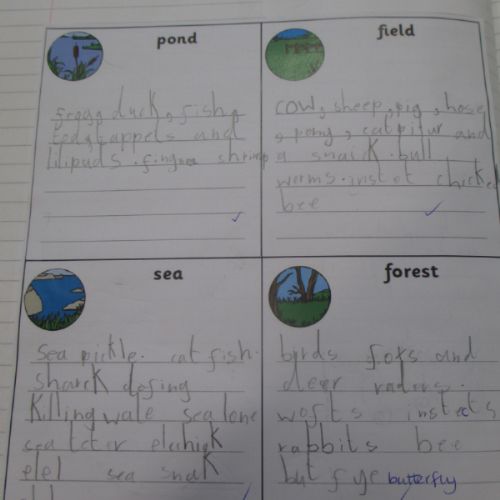 pond
frogg, duck, fish,
and
lilipads. shrimp
field
cow, sheep, pig, hose
, pony, catpilur and
a snaick. bull
worms. instet chicken
bee
sea
sea pickle. cat fish.
sharck dofing
killing wale sealone
sea teter elechick
elel sea snak
forest
birds foxs and
deer raders.
wofts instects
rabbits bee
but f ye butterfly